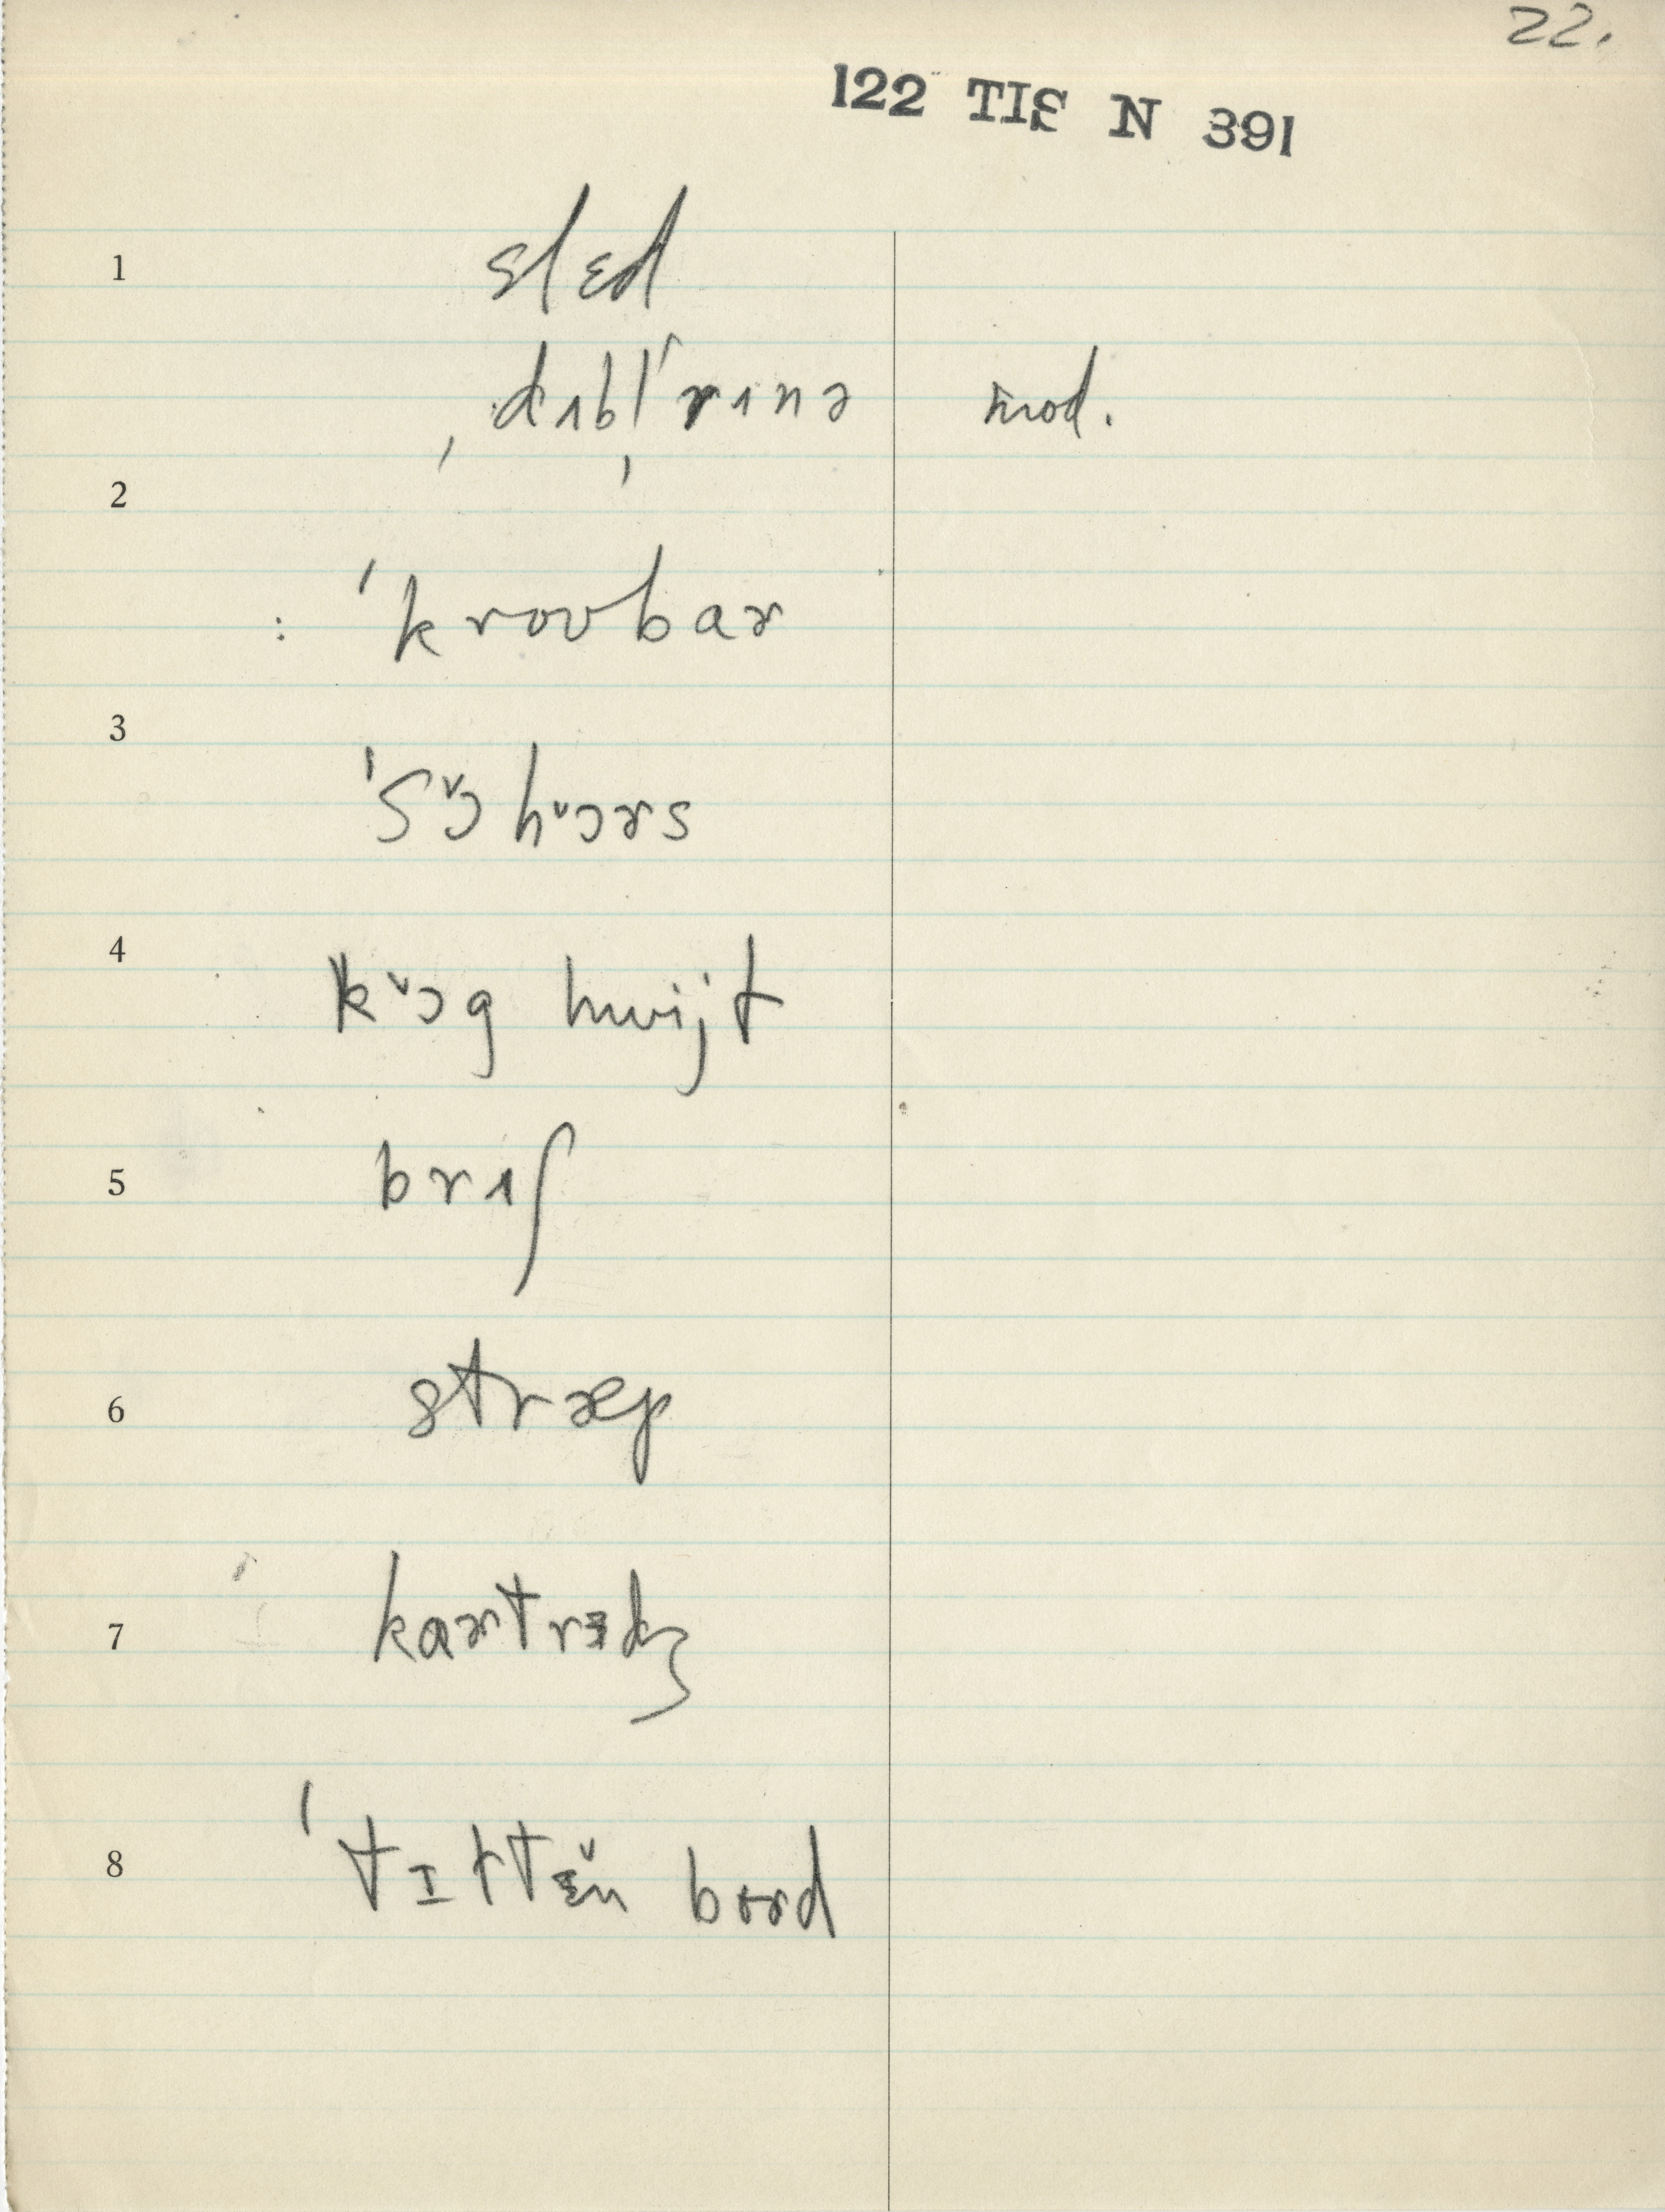 22.
122 TIS N 391
1 slɛd
ˌdɪbl̩ˈrɪnə mod.
2
: ˈkroʊbar
3
ˈsᵛɔhᵛɔrs
4
kᵛɔg hwijt
5 brɪʃ
6 stræp
7 kartrɪdʒ
8 ˈtɪltɛ̆n bord